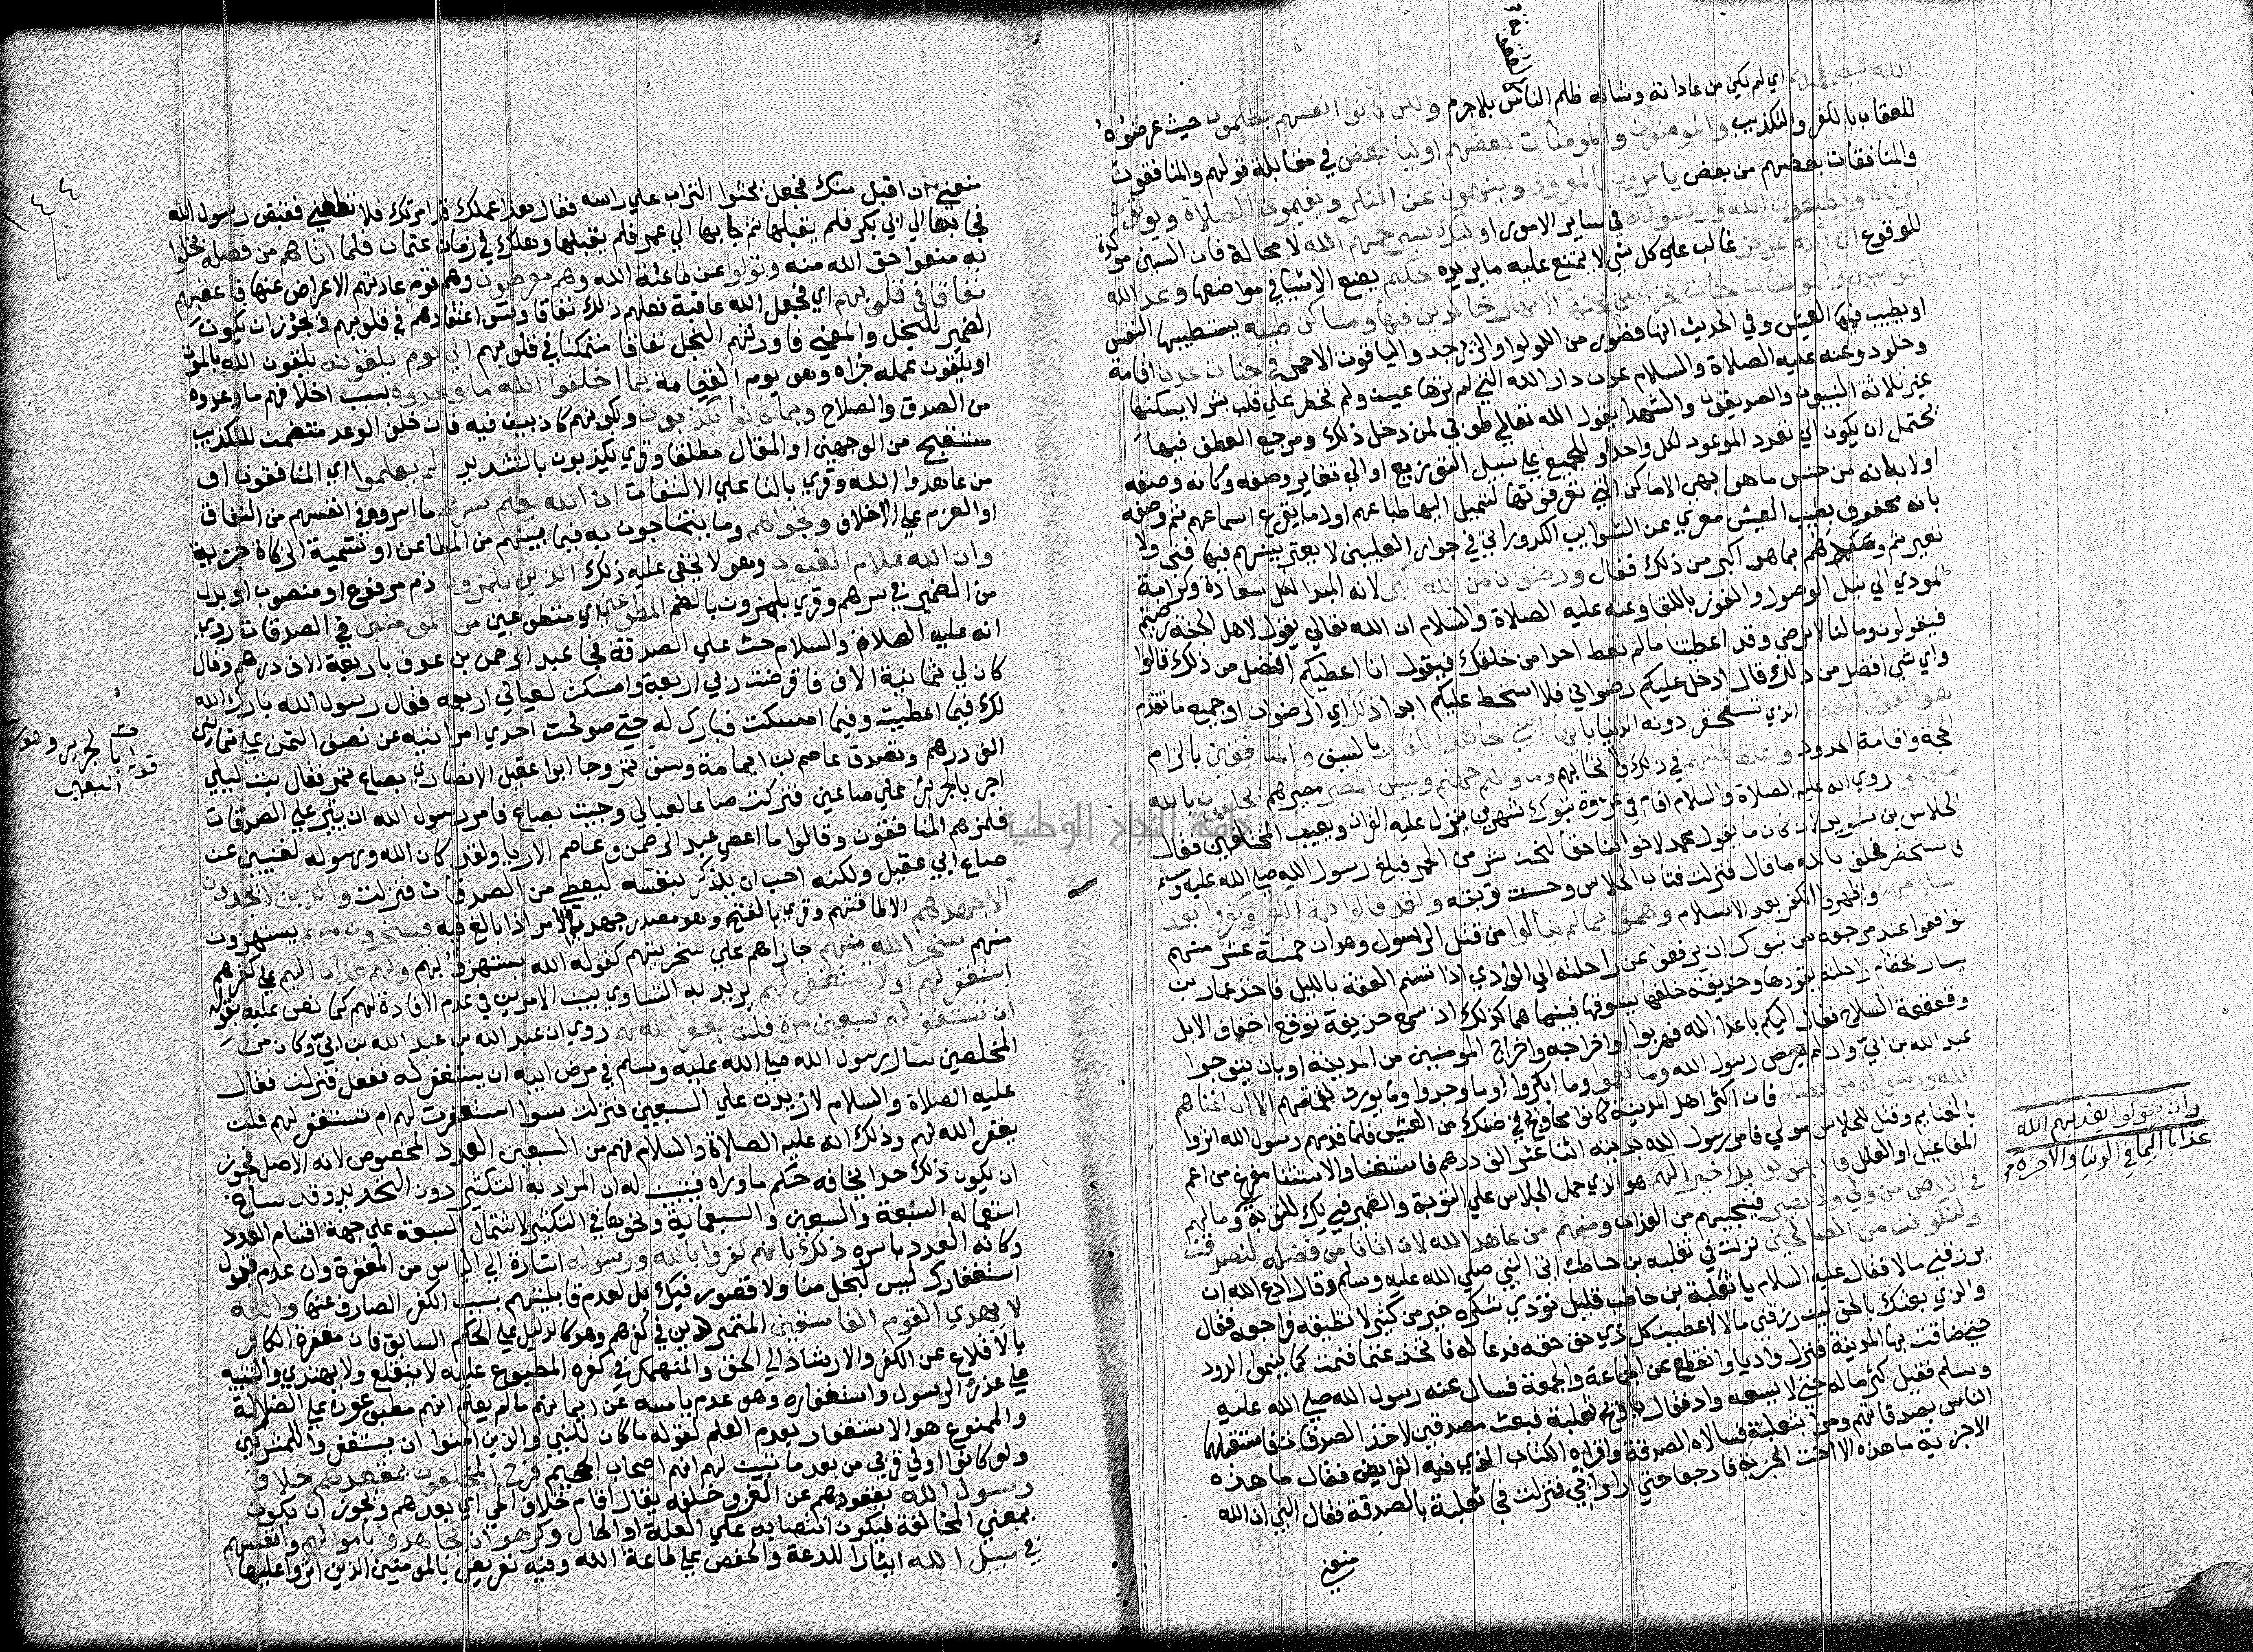 الله ليظلمهم اي لم يكن من عاداته وشانه ظلم الناس بلا جرم ولكن كانوا انفسهم يظلمون حيث عرضوه
للعقاب بالكفر والتكذيب والمومنون والمومنات بعضهم اوليا بعض في مقابلة قولهم والمنافقون
والمنافقات بعضهم من بعض يامرون بالمعروف وينهون عن المنكر ويقيمون الصلاة ويوتون
الزكاه ويطيعون الله ورسوله في ساير الامور اولئك سيرحمهم الله لا محالة فان السين موكدة
للوقوع ان الله عزيز غالب علي كل شي لا يمتنع عليه ما يريده حكيم يضع الاشيا في مواضعها وعد الله
المومنين والمومنات جنات تجري من تحتها الانهار خالدين فيها ومساكن طيبة يستطيبها النفس
او يطيب فيها العيش وفي الحديث انها قصور من اللولو والزبرجد والياقوت الاحمر في جنات عدن اقامة
وخلود وعنه عليه الصلاة والسلام عدن دار الله التي لم ترها عين ولم تخطر علي قلب بشر لا يسكنها
غير ثلاثة النبيون والصديقون والشهدا يقول الله تعالي طوبي لمن دخل ذلك ومرجع العطف فيها
يحتمل ان يكون الي تعدد الموعود لكل واحد او للجميع علي سبيل التوزيع او الي تغاير وصفه وكانه وصفه
اولا بانه من جنس ما هو ابهي الاماكن التي تعرفونها لتميل اليها طباعهم اول ما يقرع اسماعهم ثم وصفه
بانه محفوف بطيب العيش معري عن الشوايب الكدورات في جوار العليين لا يعتريهم فيها فنى ولا
تغير ثم وعدهم بما هو اكبر من ذلك فقال ورضوان من الله اكبر لانه المبدا لكل سعادة وكرامة
المودي الي نيل الوصول والفوز باللقا وعنه عليه الصلاة والسلام ان الله تعالي يقول لاهل الجنة هل رضيتم
فيقولون وما لنا لا نرضي وقد اعطيتنا ما لم تعط احدا من خلقك فيقول انا اعطيكم افضل من ذلك قالوا
واي شي افضل من ذلك قال ادخل عليكم رضواني فلا اسخط عليكم ابدا ذلك اي الرضوان او جميع ما تقدم
هو الفوز العظيم الذي تستحقر دونه الدنيا يا ايها النبي جاهد الكفار بالسيف والمنافقين بالزام
الحجة واقامة الحدود واغلظ عليهم في ذلك ولا تحابهم وماواهم جهنم وبيس المصير مصيرهم يحلفون بالله
ما قالوا روي انه عليه الصلاة والسلام اقام في غزوة تبوك شهرين ينزل عليه القران ويعيب المتخلفين فقال
الجلاس بن سويد لان كان ما يقول محمد لاخواننا حقا لنحن شر من الحمر فبلغ رسول الله صلي الله عليه وسلم
فاستحضر فحلف بالله ما قال فنزلت فتاب الجلاس وحسنت توبته ولقد قالوا كلمة الكفر وكفروا بعد
اسلامهم واظهروا الكفر بعد الاسلام وهموا بما لم ينالوا من قتل الرسول وهو ان خمسة عشر منهم
توافقوا عند مرجعه من تبوك ان يدفعوه عن راحلته الي الوادي اذا تسنم العقبة بالليل فاخذ عمار بن
ياسر بخطام راحلته يقودها وحذيفة خلفها يسوقها فبينما هما كذلك اذ سمع حذيفة بوقع اخفاف الابل
وقعقعة السلاح فقال اليكم يا اعدا الله فهربوا او اخراجه واخراج المومنين من المدينة او بان يتوجوا
عبد الله بن ابي وان لم يرض رسول الله وما نقموا وما انكروا او ما وجدوا وما يورث نقمتهم الا ان اغناهم
الله ورسوله من فضله فان اكثر اهل المدينة كانوا محاويج في ضنك من العيش فلما قدمهم رسول الله اثروا
بالغنايم وقتل للجلاس مولي فامر رسول الله بديته اثنا عشر الف درهم فاستغنا والاستثنا مفرغ من اعم
المفاعيل او العلل فان يتوبوا يك خيرا لهم هو الذي حمل الجلاس علي التوبة والضمير في يك للتوبة وما لهم
في الارض من ولي ولا نصير فينجيهم من العذاب ومنهم من عاهد الله لان اتانا من فضله لنصدقن
ولنكونن من الصالحين نزلت في ثعلبه بن حاطب اتي النبي صلي الله عليه وسلم وقال ادع الله ان
يرزقني مالا فقال عليه السلام يا ثعلبة بن حاطب قليل تودي شكره خير من كثير لا تطيقه فراجعه فقال
والذي بعثك بالحق لين رزقني مالا لاعطين كل ذي حق حقه فدعا له فاتخذ غنما فنمت كما ينمو الدود
حتي ضاقت بها المدينة فنزل واديا وانقطع عن الجماعة والجمعة فسال عنه رسول الله صلي الله عليه
وسلم فقيل كثر ماله حتي لا يسعه واد فقال يا ويح ثعلبة فبعث مصدقين لاخذ الصدقات فاستقبلهما
الناس بصدقاتهم ومرا بثعلبة فسالاه الصدقة واقراه الكتاب الذي فيه الفرايض فقال ما هذه
الا جزية ما هذه الا اخت الجزية فارجعا حتي اري رايي فنزلت فجا ثعلبة بالصدقة فقال النبي ان الله
منعني
وان يتولوا يعذبهم الله
عذابا اليما في الدنيا والاخره
جامعة النجاح الوطنية
منعني ان اقبل منك فجعل يحثوا التراب علي راسه فقال هذا عملك قد امرتك فلم تطعني فقبض رسول الله
فجا بها الي ابي بكر فلم يقبلها ثم جا بها الي عمر فلم يقبلها وهلك في زمان عثمان فلما اتاهم من فضله بخلوا
به منعوا حق الله منه وتولوا عن طاعة الله وهم معرضون وهم قوم عادتهم الاعراض عنها فاعقبهم
نفاقا في قلوبهم اي فجعل الله عاقبة فعلهم ذلك نفاقا وسو اعتقادهم في قلوبهم ويجوز ان يكون
الضمير للبخل والمعني فاورثهم البخل نفاقا متمكنا في قلوبهم الي يوم يلقونه يلقون الله بالموت
او يلقون عمله جزاه وهو يوم القيامة بما اخلفوا الله ما وعدوه بسبب اخلافهم ما وعدوه
من الصدق والصلاح وبما كانوا يكذبون وبكونهم كاذبين فيه فان خلف الوعد متضمن للكذب
مستقبح من الوجهين او المقال مطلقا وقري يكذبون بالتشديد الم يعلموا اي المنافقون او
من عاهدوا الله وقري بالتا علي الالتفات ان الله يعلم سرهم ما اسروه في انفسهم من النفاق
او العزم علي الاخلاف ونجواهم وما يتناجون به فيما بينهم من المطاعن او تسمية الزكاة جزية
وان الله علام الغيوب وهو لا يخفي عليه ذلك الذين يلمزون ذم مرفوع او منصوب او بدل
من الضمير في سرهم وقري يلمزون بالضم المطوعين اي متطوعين من المومنين في الصدقات روي
انه عليه الصلاة والسلام حث علي الصدقة فجا عبد الرحمن بن عوف باربعة الاف درهم وقال
كان لي ثمانية الاف فاقرضت ربي اربعة وامسكت لعيالي اربعه فقال رسول الله بارك الله
لك فيما اعطيت وفيما امسكت فبارك له حتي صولحت احدي امراتيه عن نصف الثمن علي ثمانين
الف درهم وتصدق عاصم بن ايمامة وسق تمر وجا ابوا عقيل الانصاري بصاع تمر فقال بت ليلي
اجر بالجرير علي صاعين فتركت صاعا لعيالي وجيت بصاع فامره رسول الله ان ينثر علي الصدقات
فلمزهم المنافقون وقالوا ما اعطي عبد الرحمن وعاصم الا ريا ولقد كان الله ورسوله لغنيين عن
صاع ابي عقيل ولكنه احب ان يذكر بنفسه ليعطي من الصدقات فنزلت والذين لا يجدون
الا جهدهم الا طاقتهم وقري بالفتح وهو مصدر جهد في الامر اذا بالغ فيه فيسخرون منهم يستهزون
منهم سخر الله منهم جازاهم علي سخريتهم كقوله الله يستهزئ بهم ولهم عذاب اليم علي كفرهم
استغفر لهم او لا تستغفر لهم يريد به التساوي بين الامرين في عدم الافادة لهم كما نص عليه بقوله
ان تستغفر لهم سبعين مرة فلن يغفر الله لهم روي ان عبد الله بن عبد الله بن ابي وكان من
المخلصين سال رسول الله صلي الله عليه وسلم في مرض ابيه ان يستغفر له ففعل فنزلت فقال
عليه الصلاة والسلام لازيدن علي السبعين فنزلت سوا استغفرت لهم ام تستغفر لهم فلن
يغفر الله لهم وذلك انه عليه الصلاة والسلام فهم من السبعين العدد المخصوص لانه الاصل فجوز
ان يكون ذلك حدا يخالفه حكم ما وراه فبين له ان المراد به التكثير دون التحديد وقد ساع
استعماله السبعة والسبعين والسبعماية ونحوها في التكثير لاشتمال السبعة علي جهة اقسام العدد
وكانه العدد باسره ذلك بانهم كفروا بالله ورسوله اشارة الي الياس من المغفرة وان عدم قبول
استغفارك ليس لبخل منا ولا قصور فيك بل لعدم قابليتهم بسبب الكفر الصارف عنها والله
لا يهدي القوم الفاسقين المتمردين في كفرهم وهو كالدليل علي الحكم السابق فان مغفرة الكافر
بالاقلاع عن الكفر والارشاد الي الحق والمنهمك في كفره المطبوع عليه لا ينقلع ولا يهتدي والتنبيه
علي عذر الرسول واستغفاره وهو عدم ياسه عن ايمانهم ما لم يعلم انهم مطبوعون علي الضلالة
والممنوع هو الاستغفار بعدم العلم لقوله ما كان للنبي والذين امنوا ان يستغفروا للمشركين
ولو كانوا اولي قربي من بعد ما تبين لهم انهم اصحاب الجحيم فرح المخلفون بمقعدهم خلاف
رسول الله بقعودهم عن الغزو خلفه يقال اقام خلاف الحي اي بعدهم ويجوز ان يكون
بمعني المخالفة فيكون انتصابه علي العلة او الحال وكرهوا ان يجاهدوا باموالهم وانفسهم
في سبيل الله ايثارا للدعة والخفض علي طاعة الله وفيه تعريض بالمومنين الذين اثروا عليها
قوله بالجرير وهو
البعير